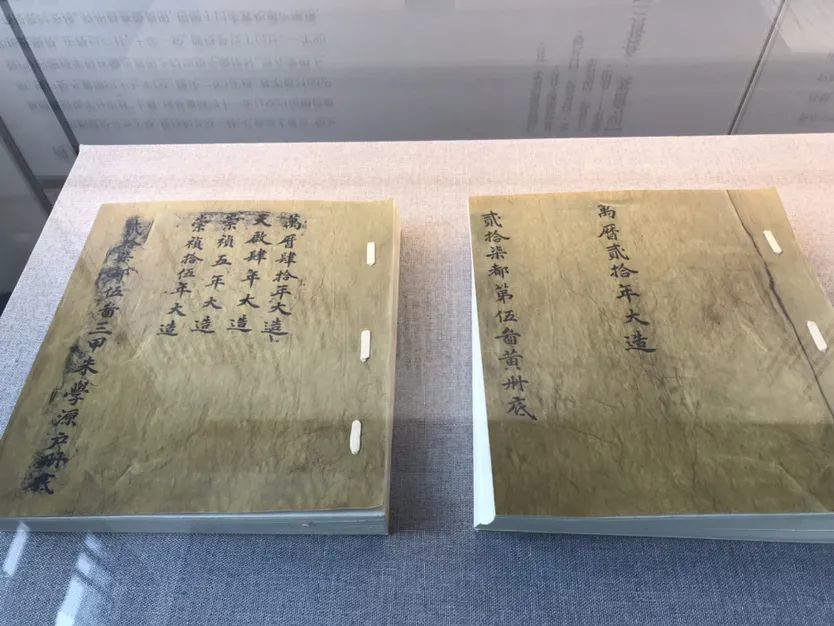 萬曆肆拾年大造
天啟肆年大造
崇禎五年大造
崇禎拾伍年大造
貳拾柒都伍啚三甲朱學源戶冊底
萬曆貳拾年大造
貳拾柒都第伍啚黃冊底